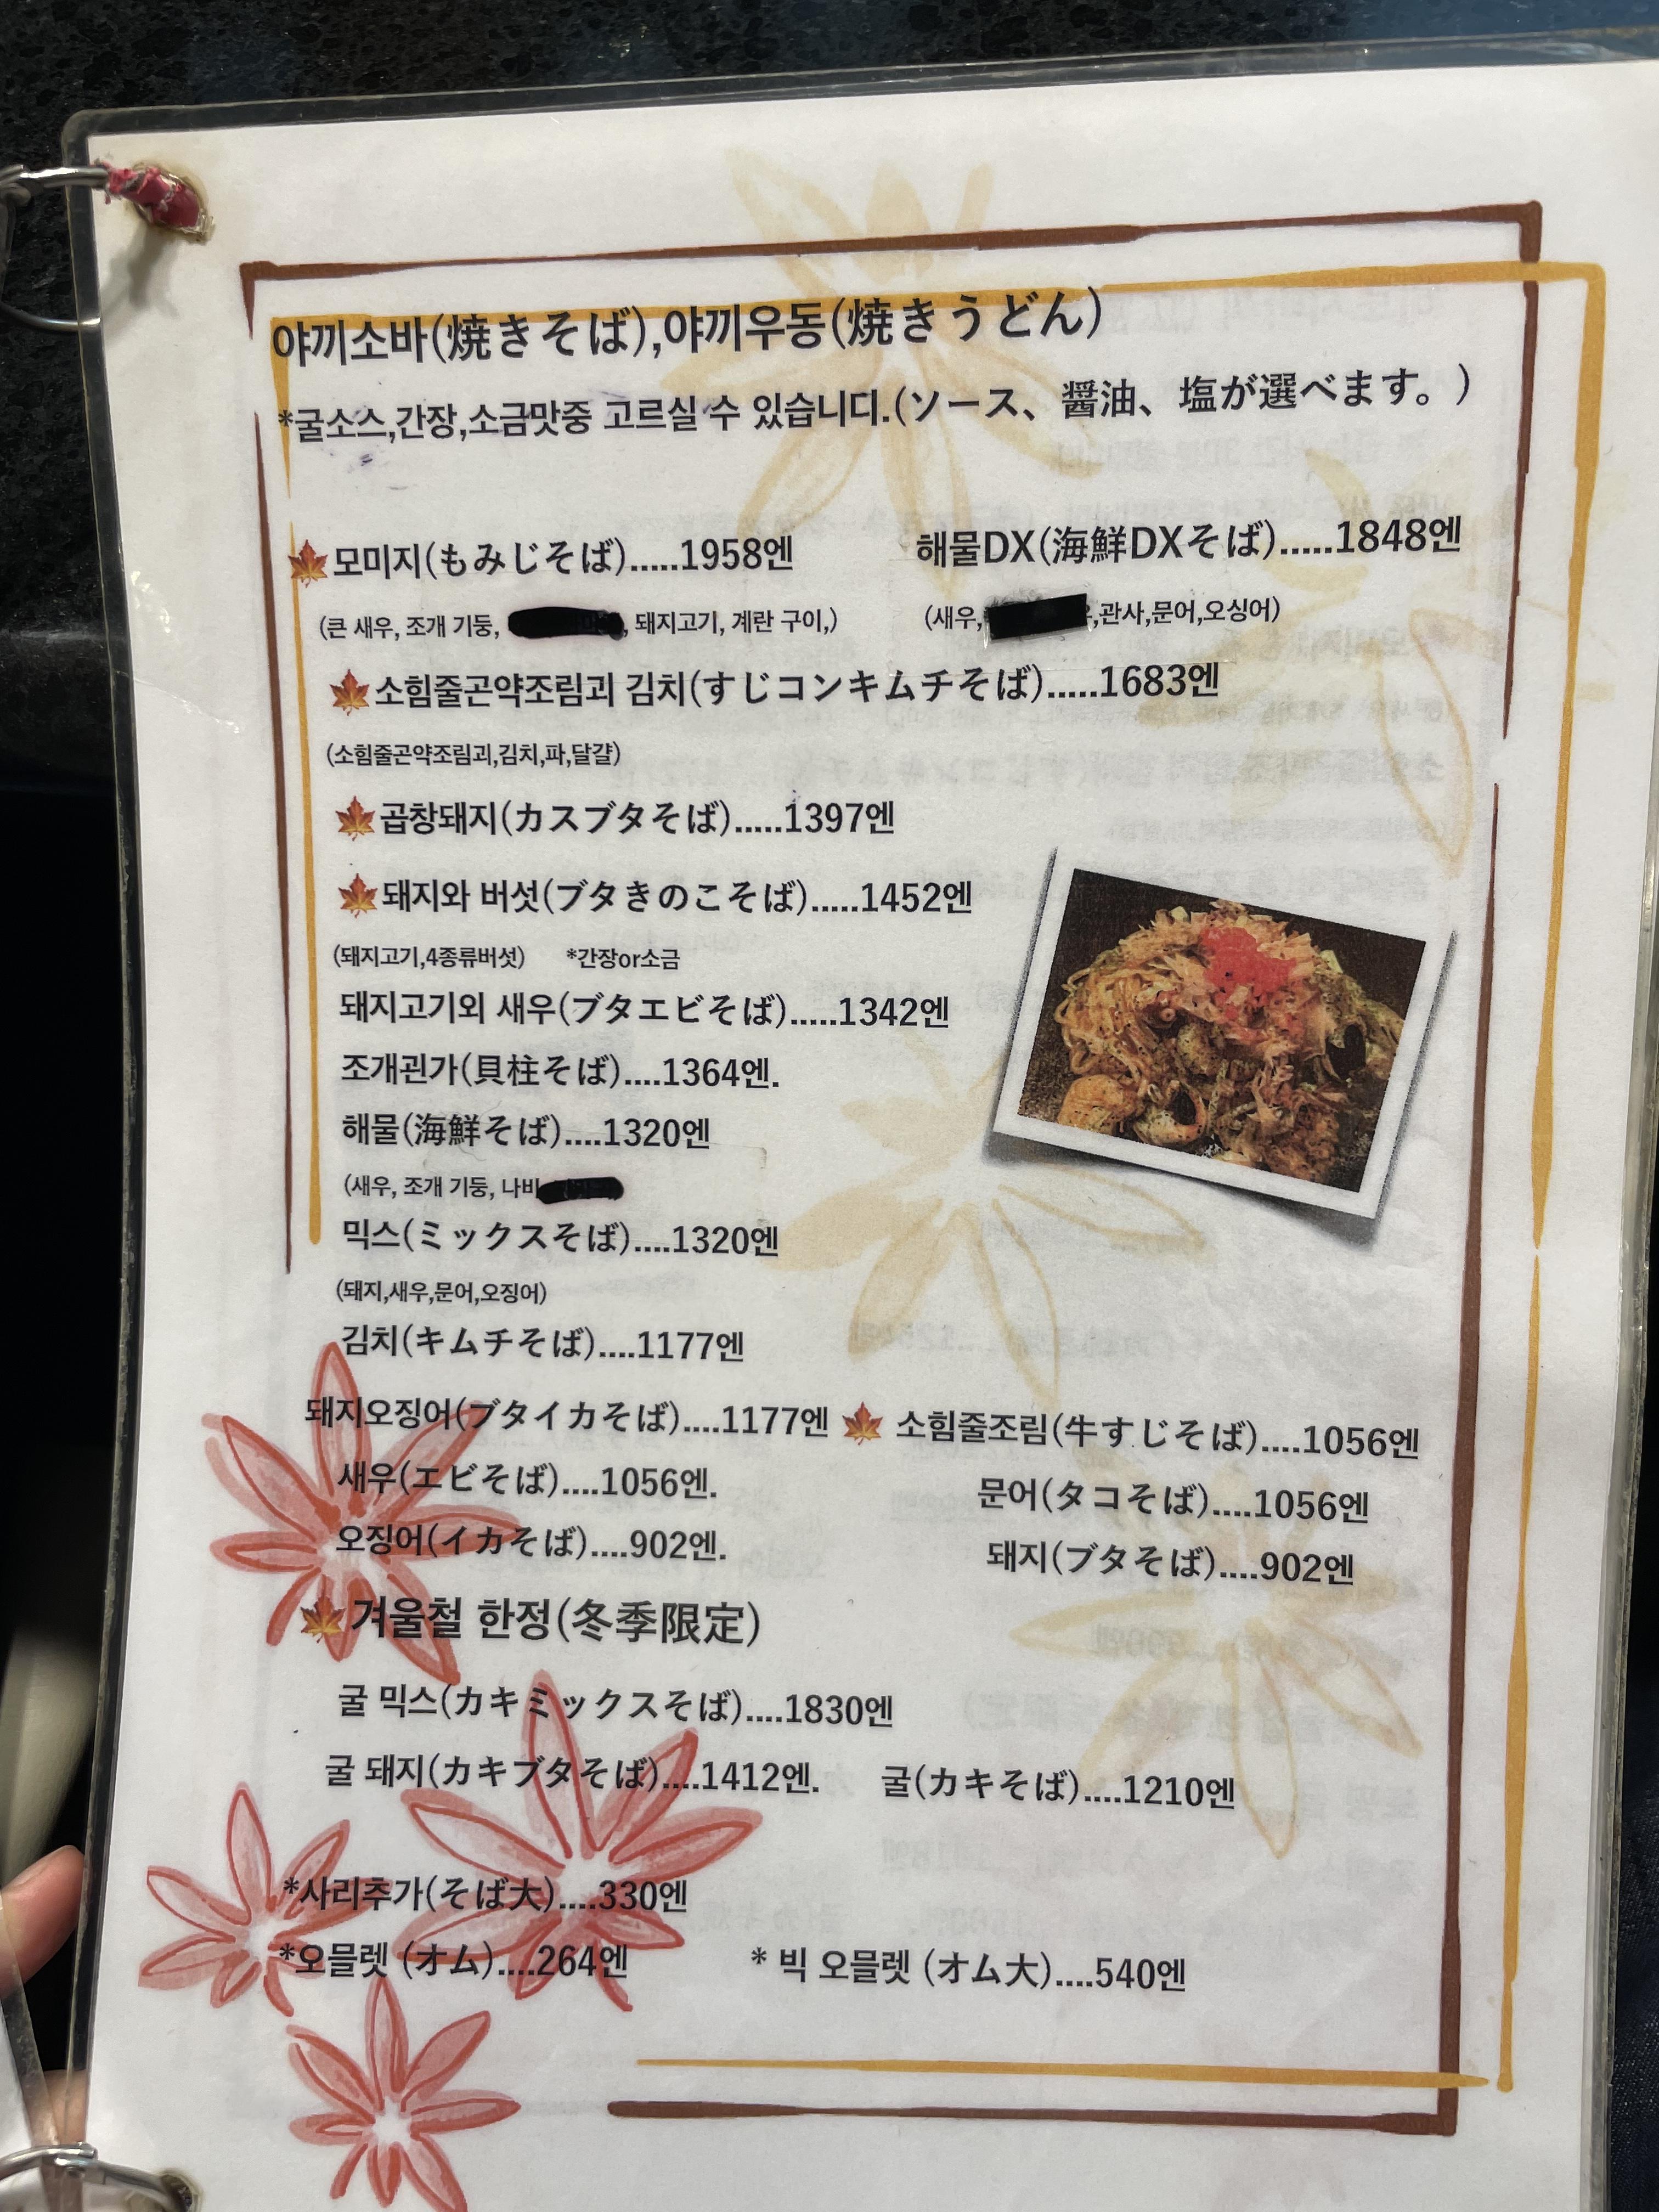 야끼소바(焼きそば),야끼우동(焼きうどん)
*굴소스,간장,소금맛중 고르실 수 있습니디.(ソース、醤油、塩が選べます。)
모미지(もみじそば).....1958엔
해물DX(海鮮DXそば).....1848엔
(큰 새우, 조개 기둥, , 돼지고기, 계란 구이,)
(새우, ,관사,문어,오싱어)
소힘줄곤약조림괴 김치(すじコンキムチそば).....1683엔
(소힘줄곤약조림괴,김치,파,달걀)
곱창돼지(カスブタそば).....1397엔
돼지와 버섯(ブタきのこそば).....1452엔
(돼지고기,4종류버섯) *간장or소금
돼지고기외 새우(ブタエビそば).....1342엔
조개괸가(貝柱そば)....1364엔.
해물(海鮮そば)....1320엔
(새우, 조개 기둥, 나비
믹스(ミックスそば)....1320엔
(돼지,새우,문어,오징어)
김치(キムチそば)....1177엔
돼지오징어(ブタイカそば)....1177엔
소힘줄조림(牛すじそば)....1056엔
새우(エビそば)....1056엔.
문어(タコそば)....1056엔
오징어(イカそば)....902엔.
돼지(ブタそば)....902엔
겨울철 한정(冬季限定)
굴 믹스(カキミックスそば)....1830엔
굴 돼지(カキブタそば)....1412엔.
굴(カキそば)....1210엔
*사리추가(そば大)....330엔
*오믈렛 (オム)....264엔
* 빅 오믈렛 (オム大)....540엔